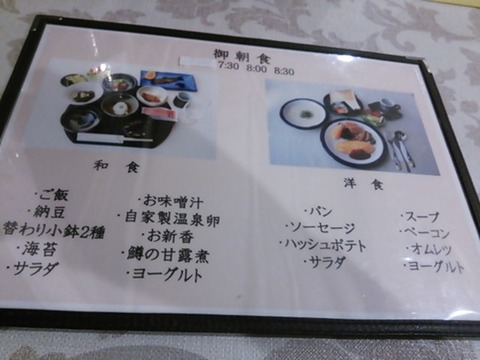 御朝食
7:30 8:00 8:30
和食
・ご飯
・納豆
替わり小鉢2種
・海苔
・サラダ
・お味噌汁
・自家製温泉卵
・お新香
・鱒の甘露煮
・ヨーグルト
洋食
・パン
・ソーセージ
・ハッシュポテト
・サラダ
・スープ
・ベーコン
・オムレツ
・ヨーグルト